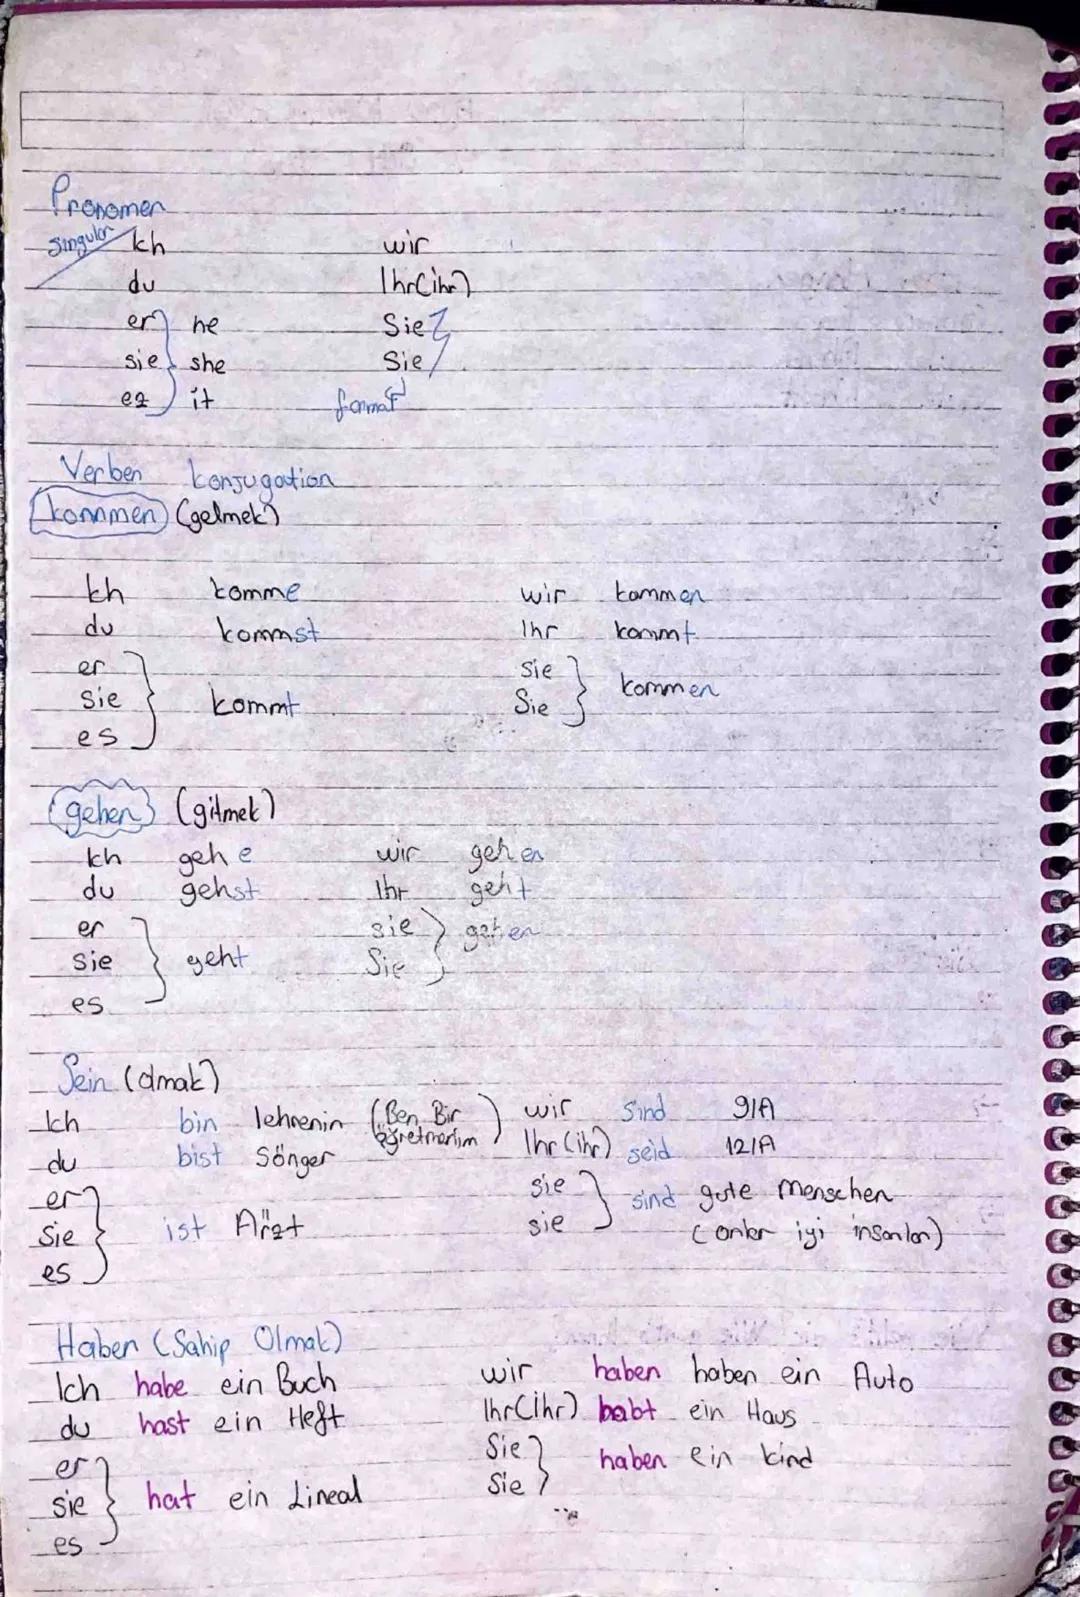 Pronomen
Singular Ich wir
du Ihr(ihr)
er } he Sie }
sie } she Sie }
ez } it formal
Verben konjugation
kommen (gelmek)
Ich komme wir kommen
du kommst Ihr kommt
er sie
sie } kommt Sie } kommen
es
gehen (gitmek)
Ich gehe wir gehen
du gehst Ihr geht
er sie } gehen
sie } geht Sie
es
Sein (olmak)
Ich bin lehrerin (Ben Bir öğretmenim) wir sind 9/A
du bist Sönger Ihr (ihr) seid 12/A
er sie } sind gute Menschen
sie } ist Arzt sie (onlar iyi insanlar)
es
Haben (Sahip Olmak)
Ich habe ein Buch wir haben haben ein Auto
du hast ein Heft Ihr(ihr) habt ein Haus
er Sie } haben ein kind
sie } hat ein Lineal Sie
es